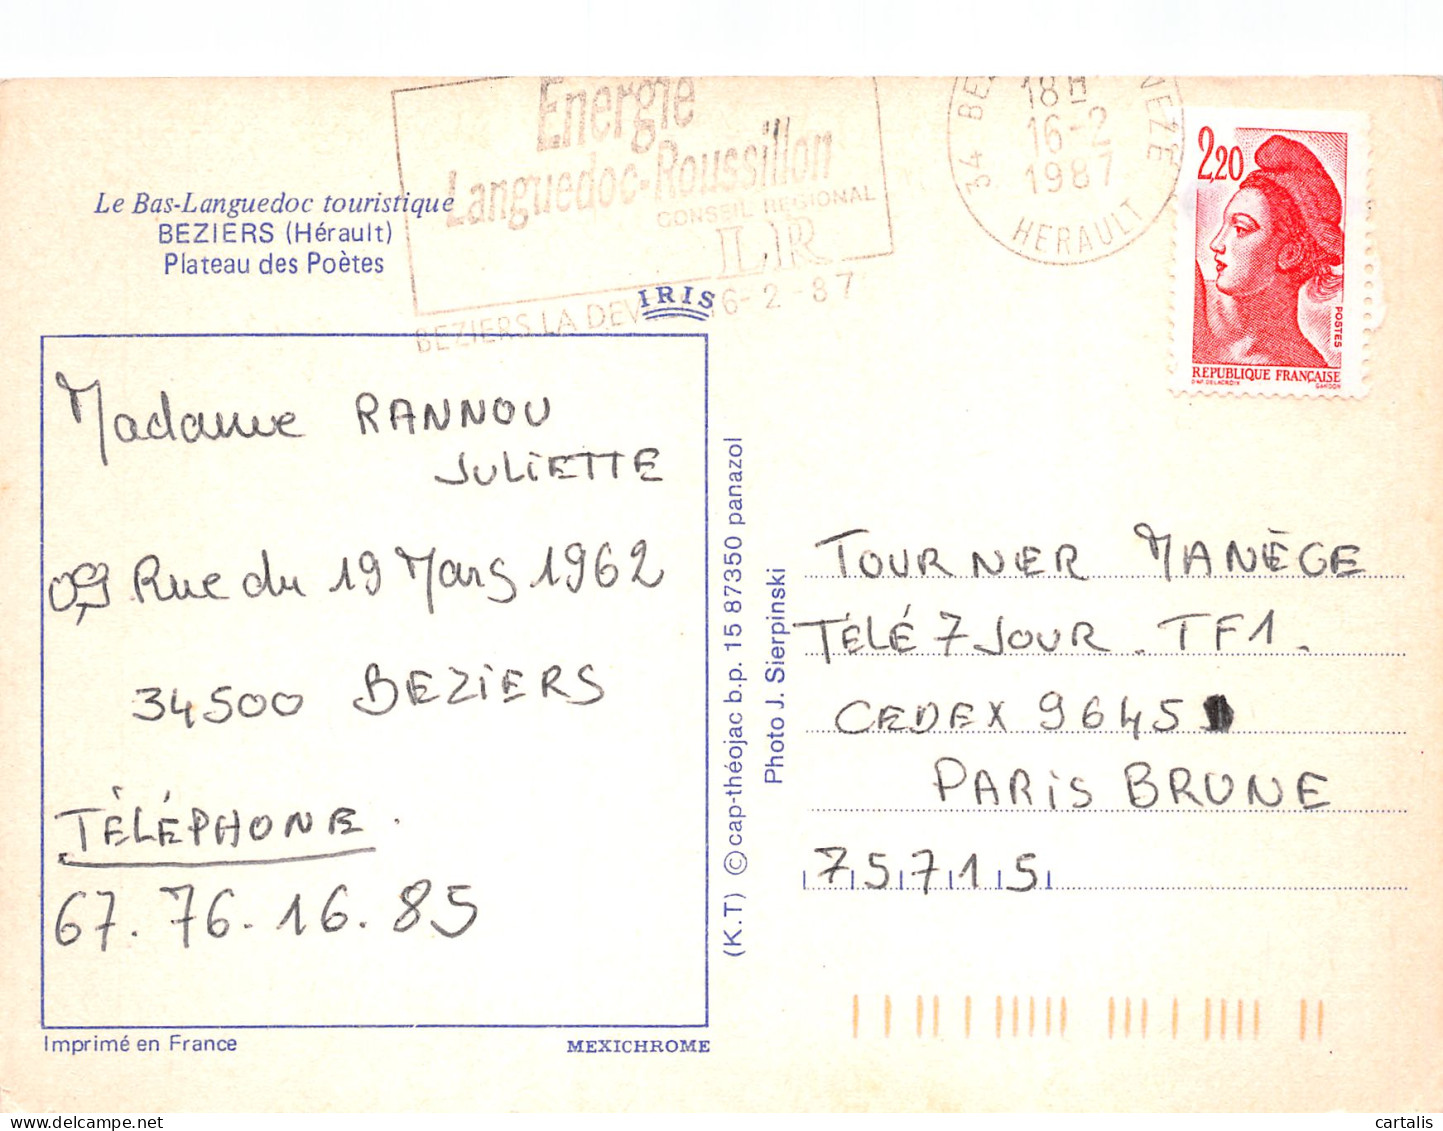 Energie
Languedoc-Roussillon
CONSEIL REGIONAL
LR
BEZIERS LA DEV 16-2-87
34 BE NEZE
18H
16-2
1987
HERAULT
2,20
POSTES
REPUBLIQUE FRANÇAISE
D'AP. DELACROIX GANDON
Le Bas-Languedoc touristique
BEZIERS (Hérault)
Plateau des Poètes
IRIS
Madame RANNOU
JULIETTE
Rue du 19 Mars 1962
34500 BEZIERS
TÉLÉPHONE.
67. 76. 16. 85
Imprimé en France
MEXICHROME
(K.T) © cap-théojac b.p. 15 87350 panazol
Photo J. Sierpinski
TOURNER MANÈGE
TÉLÉ 7 JOUR. TF1.
CEDEX 9645
PARIS BRUNE
75715
cartalis